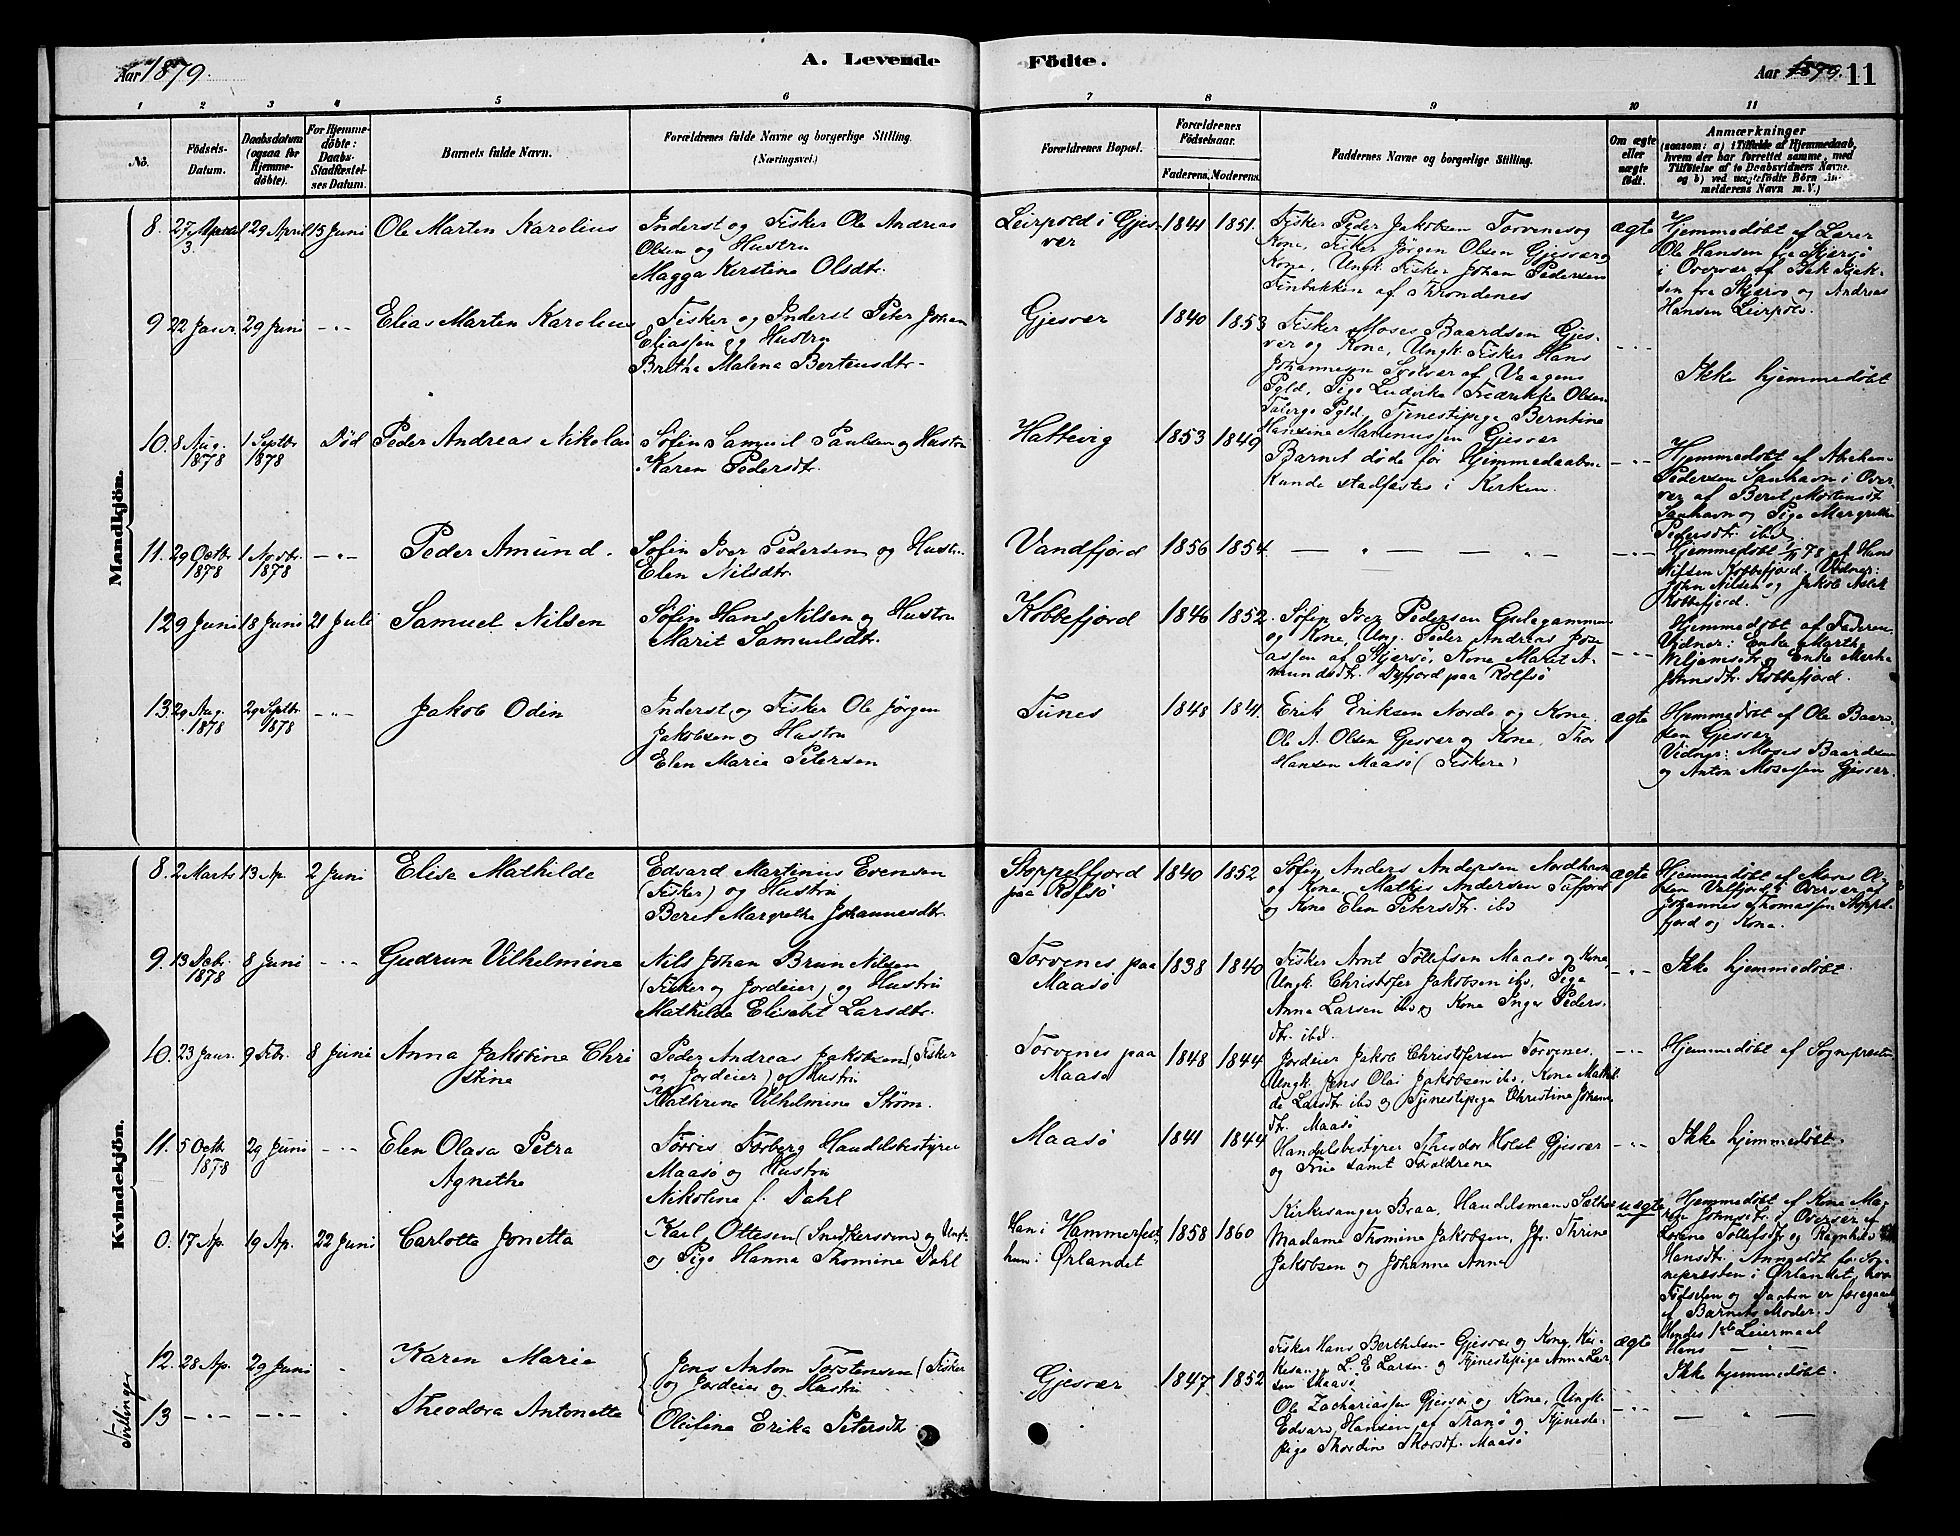 Aar 1879.
A. Levende Födte.
Aar 1879. 11
1 2 3 4 5 6 7 8 9 10 11
No.
Födsels-
Datum.
Daabsdatum
(ogsaa for
Hjemme-
döbte).
For Hjemme-
döbte:
Daabs-
Stadfæstel-
ses Datum.
Barnets fulde Navn.
Forældrenes fulde Navne og borgerlige Stilling.
(Næringsvei.)
Forældrenes Bopæl.
Forældrenes
Födselsaar.
Faderens. Moderens.
Faddernes Navne og borgerlige Stilling.
Om ægte
eller
uægte
födt.
Anmærkninger
(saasom: a) i Tilfælde af Hjemmedaab,
hvem der har forrettet samme, med
Tilföielse af to Daabsvidners Navne,
og b) ved uægtefödte Börn An-
melderens Navn m. V.)
Mandkjön.
8. 27 3. 29 April 15 Juni Ole Marten Karolius
Inderst og Fisker Ole Andreas
Olsen og Hustru
Magga Kerstina Olsdtr.
Leirpold i Gjes-
vær
1841 1851.
Fisker Peder Jakobsen Torvenes og
Kone, Fisker Jörgen Olsen Gjesvær og
Kone, Ungk. Fisker Johan Pedersen
Finbakken af Throndenes
ægte
Hjemmedøbt af Lærer
Ole Hansen fra Skjærsö
i Overvær af
sen fra og Andreas
Hansen Leirpold.
9 22 Januar 29 Juni -"- Elias Marten Karolius
Fisker og Inderst Peter Johan
Eliassen og Hustru
Britha Malena Berteusdtr.
Gjesvær
1840 1853
Fisker Moses Baardsen Gjes-
vær og Kone, Ungk. Fisker Hans
Johannesen Svolvær af Vaagens
Pgld, Pige Ludvika Fredrikke Olsen
Pgld, Tjenestepige Berntine
Hansine Gjesvær
-"-
Ikke hjemmedøbt
10. 8 Aug. 1878 1 Septbr 1878 Død Peder Andreas Nikolai
Søfin Samuel Paulsen og Hustru
Karen Pedersdtr.
Hattevig
1853 1849
Barnet døde før Hjemmedaaben
kunde stadfæstes i Kirken.
-"-
Hjemmedøbt af Abraham
Pedersen Sanhavn i Over-
vær af Beret Mortensdtr
Sanhavn og Pige Margrethe
Pedersdtr. ibd.
11. 29 Octbr 1878 1 Novbr 1878 -"- Peder Amund.
Søfin Iver Pedersen og Hustru
Elen Nilsdtr.
Vandfjord
1856 1854.
— " — — " —
-"-
Hjemmedøbt 78 af Hans
Nilsen Kobbefjord. Vidner:
John Nilsen og Jakob Aslak
Kobbefjord.
12 9 Juni 18 Juni 21 Juli Samuel Nilsen
Søfin Hans Nilsen og Hustru
Marit Samuelsdtr.
Kobbefjord
1846 1852.
Søfin Iver Pedersen Gulagammen
og Kone, Ung. Peder Andreas
af Hjersö, Kone Maret A-
mundsdtr. Dyfjord paa Rolfsö
-"-
Hjemmedøbt af Faderen.
Vidner: Enke Marthe
Wiljamsdtr og Enke Merha
Johnsdtr. Kobbefjord.
13. 29 Aug. 1878 29 Septbr 1878 -"- Jakob Odin
Inderst og Fisker Ole Jörgen
Jakobsen og Hustru
Elen Maria Petersen
Tunes
1848 1841.
Erik Eriksen Nordö og Kone,
Ole A. Olsen Gjesvær og Kone, Thor
Hansen Maasö (Fiskere)
ægte
Hjemmedøbt af Ole Baard-
sen Gjesvær
Vidner: Moses Baardsen
og Anton Mosessen Gjesvær.
Kvindekjön.
8. 2 Marts 13 Ap. 2 Juni Elisa Mathilde
Edvard Martinus Evensen
(Fisker) og Hustru
Beret Margrethe Johannesdtr.
Stoppelfjord
paa Rolfsö
1840 1852
Søfin Anders Andersen Nordhavn
og Kone, Mathis Andersen Tufjord
og Kone Elen Petersdtr. ibd
ægte
Hjemmedøbt af Mons Ol-
sen Valfjord i Overvær af
Johannes Thomassen Stoppel-
fjord og Kone.
9. 13 1878 8 Juni -"- Gudrun Vilhelmine
Nils Johan Brun Nilsen
(Fisker og Jordeier) og Hustru
Mathilde Elisabet Larsdtr.
Torvenes paa
Maasö
1838 1840
Fisker Arnt Tollefsen Maasö og Kone,
Ungk. Christofer Jakobsen ibd, Pige
Anna Larsen ibd og Kone Inger Peders-
dtr. ibd.
-"-
Ikke hjemmedøbt.
10. 23 Janr. 9 Febr. 8 Juni Anna Jakobine Chri
stine
Peder Andreas Jakobsen (Fisker
og Jordeier) og Hustru
Kathrine Vilhelmine Strøm.
Torvenes paa
Maasö
1848 1844
Jordeier Jakob Christofersen Torvenes,
Ungk. Jens Olai Jakobsen ibd, Kone Mathil-
de Larsdtr ibd og Tjenestepige Christina Johan
dtr. Maasö
-"-
Hjemmedøbt af Sognepræsten
11. 5 Octbr 1878 29 Juni -"- Elen Olasa Petra
Agnethe
Torvis Torberg Handelsbestyrer
Maasö og Hustru
Nikoline f. Dahl
Maasö
1841 1844
Handelsbestyrer Theodor Holst Gjesvær
og Frue samt Forældrene
-"-
Ikke hjemmedøbt.
0. 17 Ap. 19 Ap. 22 Juni Carlotta Jonetta
Karl Ottesen (Snedkersvend og Ungk.
og Pige Hanna Thomine Dahl
Han i Hammerfest,
hun i Ørlandet
1858 1860
Kirkesanger Braa, Handelsmand
Madame Thomine Jakobsen, Jfr. Thrine
Jakobsen og Johanna Anna
uægte
Hjemmedøbt af Kone Ma-
ren Johnsdtr i Overvær af
Lorena Tollefsdtr og Ragnhild
Hansdtr. Anmeldt for Sog-
nepræsten i Ørlandet, hvor
Fødselen og Daaben er foregaaet
af Barnets Moder.
Hendes 1ste Leiermaal
Hans — " —
Tvillinger
12. 28 Ap. 29 Juni " Karen Marie
Jens Anton Torstensen (Fisker
og Jordeier og Hustru
Olufina Erika Petersdtr
Gjesvær
1847 1852
Fisker Hans Berthelsen Gjesvær og Kone, Kir-
kesanger L. E Larsen og Tjenestepige Anna Lar
sen Maasö
ægte
Ikke hjemmedøbt.
13 -"- -"- " Theodora Antonette
Ole Zachariassen Gjesvær og Kone, Ungk.
Edvard Hansen af Tranö og Tjeneste-
pige Thordine Thorsdtr. Maasö
-"-
— " —